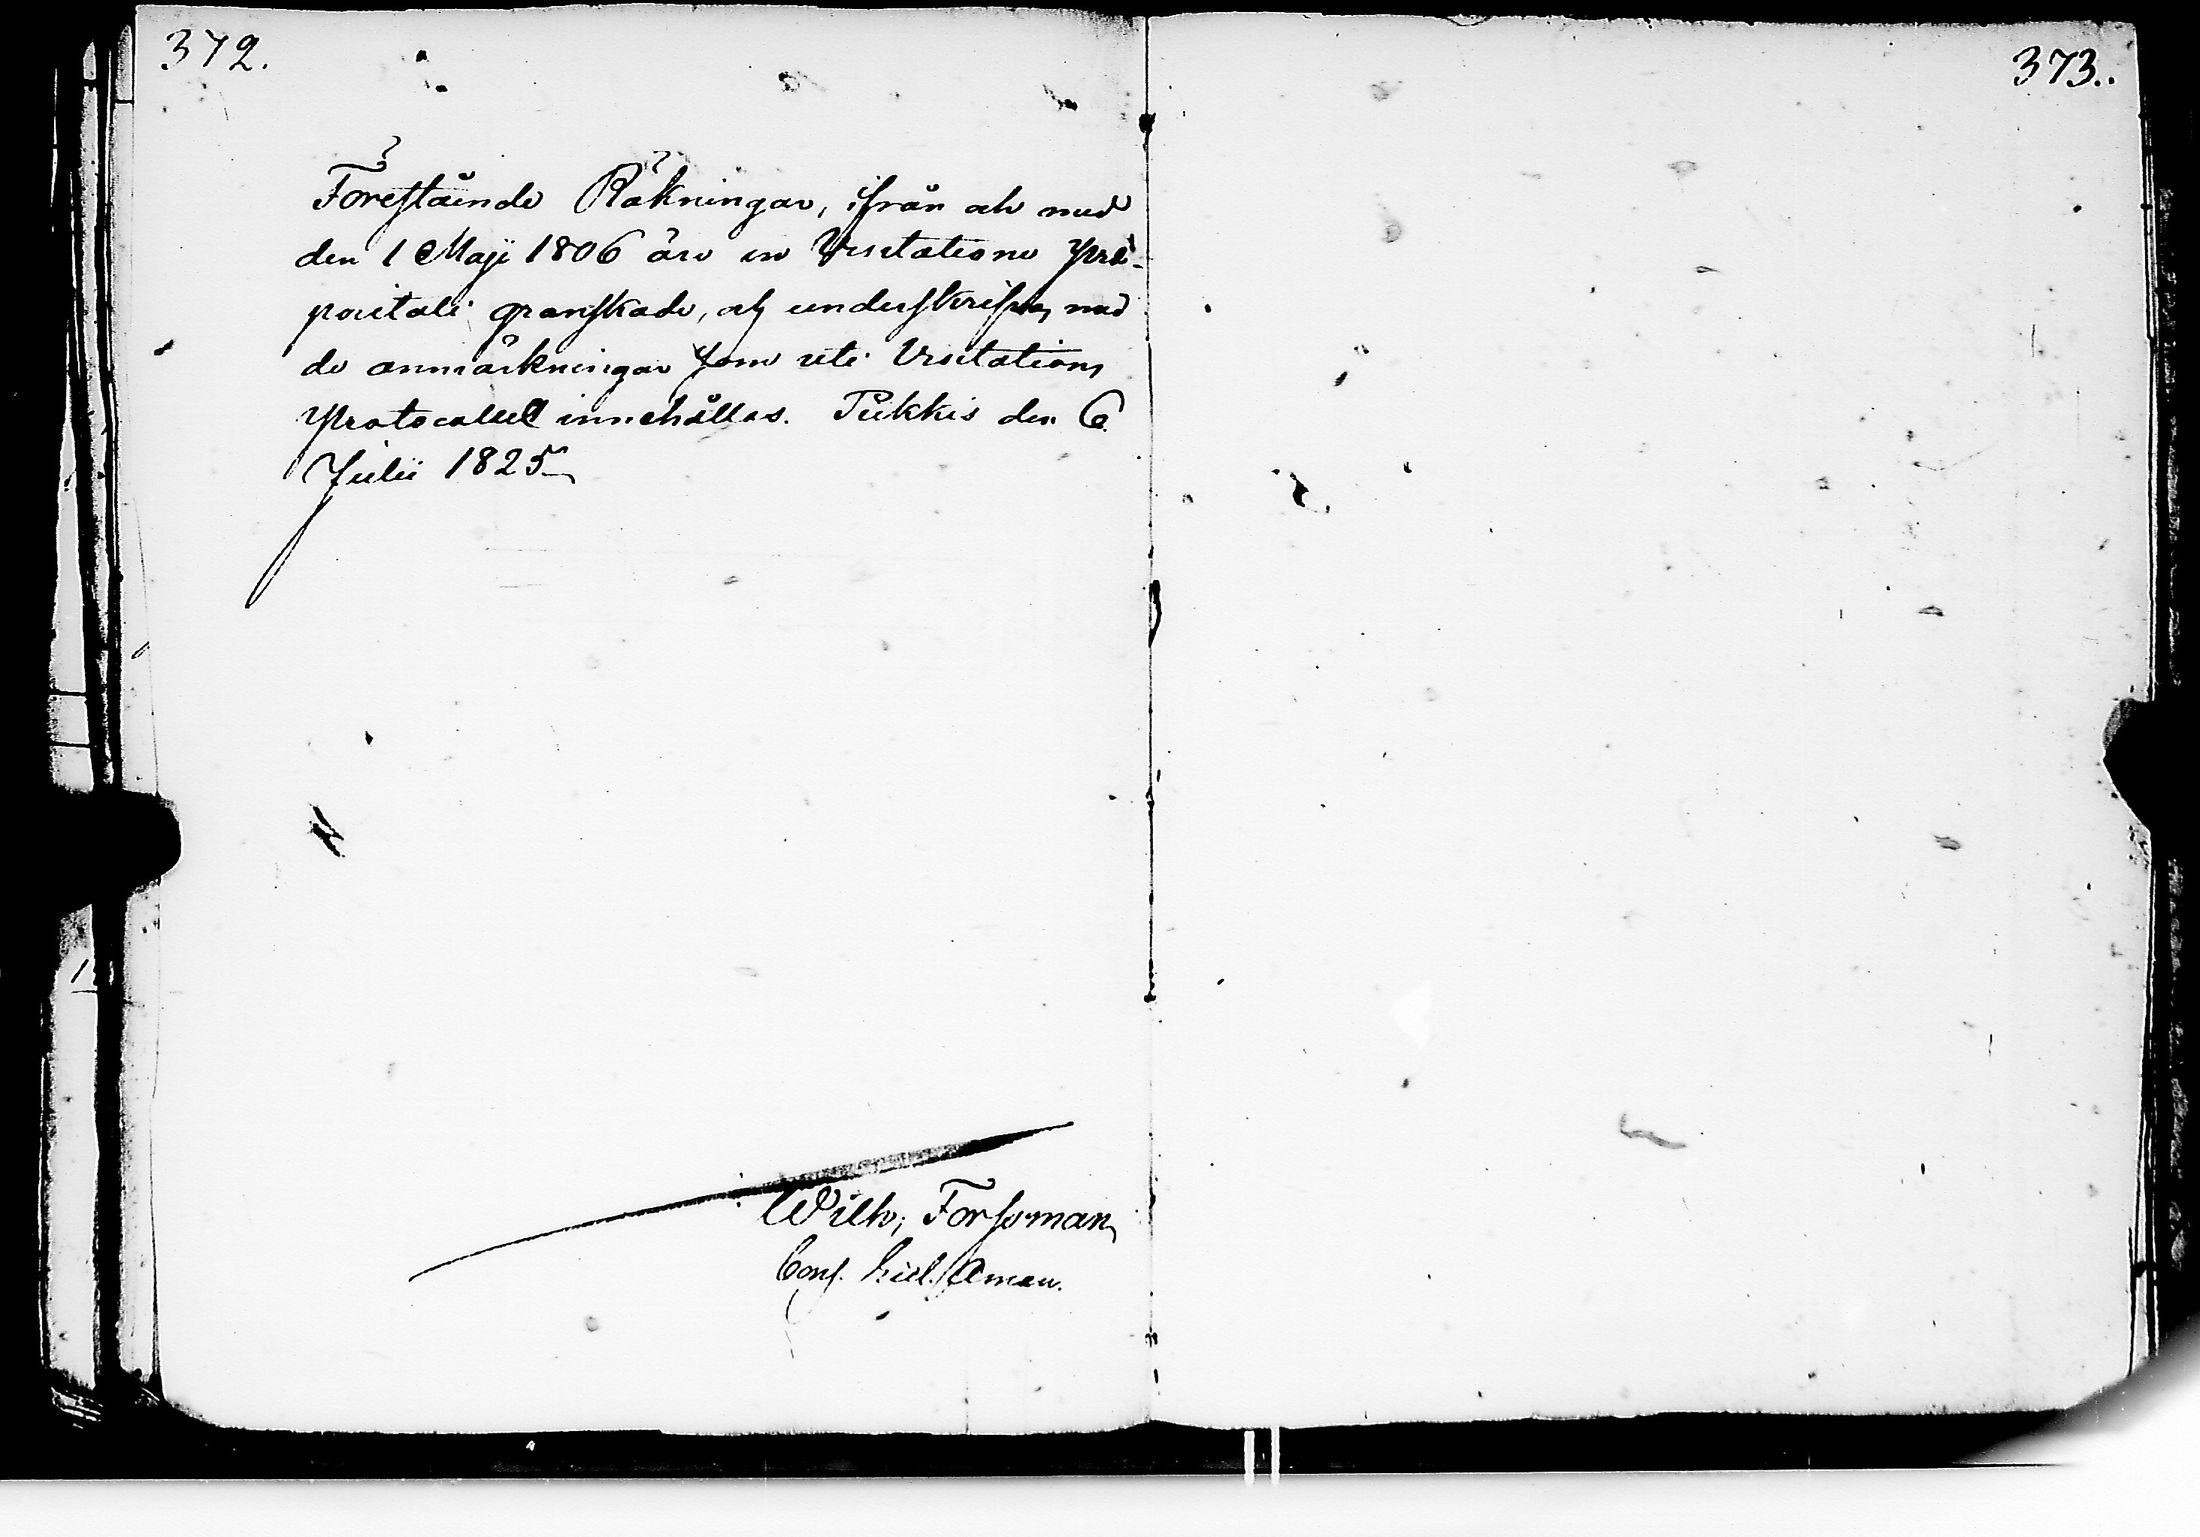 372.
373.
Förestående Räkningar, ifrån och med
den 1 Maji 1806 äro in Visitatione Præ-
positali granskade, och underskrifna med
de anmärkningar som uti Visitations
Protocollet innehållas. Pikkis den 6
Julii 1825
Wilh, Forssman